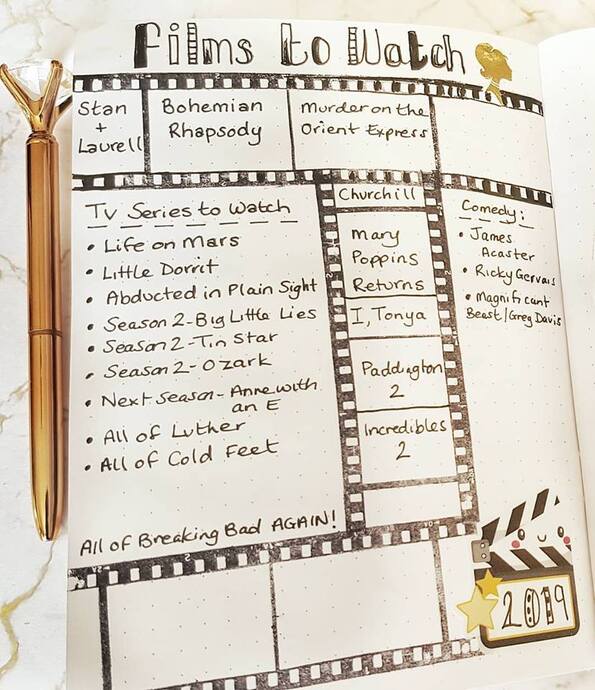 Films to Watch
Stan
+
Laurell
Bohemian
Rhapsody
Murder on the
Orient Express
TV Series to Watch
• Life on Mars
• Little Dorrit
• Abducted in Plain Sight
• Season 2 - Big Little Lies
• Season 2 - Tin Star
• Season 2 - Ozark
• Next Season - Anne with
an E
• All of Luther
• All of Cold Feet
All of Breaking Bad AGAIN!
Churchill
Mary
Poppins
Returns
I, Tonya
Paddington
2
Incredibles
2
Comedy:
• James
Acaster
• Ricky Gervais
• Magnificant
Beast/Greg Davis
2019